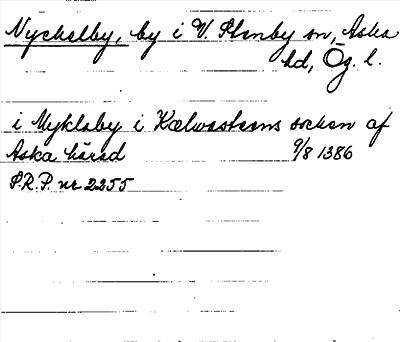 Nyckelby, by i V. Stenby sn, Aska
hd, Ög. l.
i Myklaby i Kælwastens socken af
Aska härad 9/8 1386
S.R.P. nr 2255